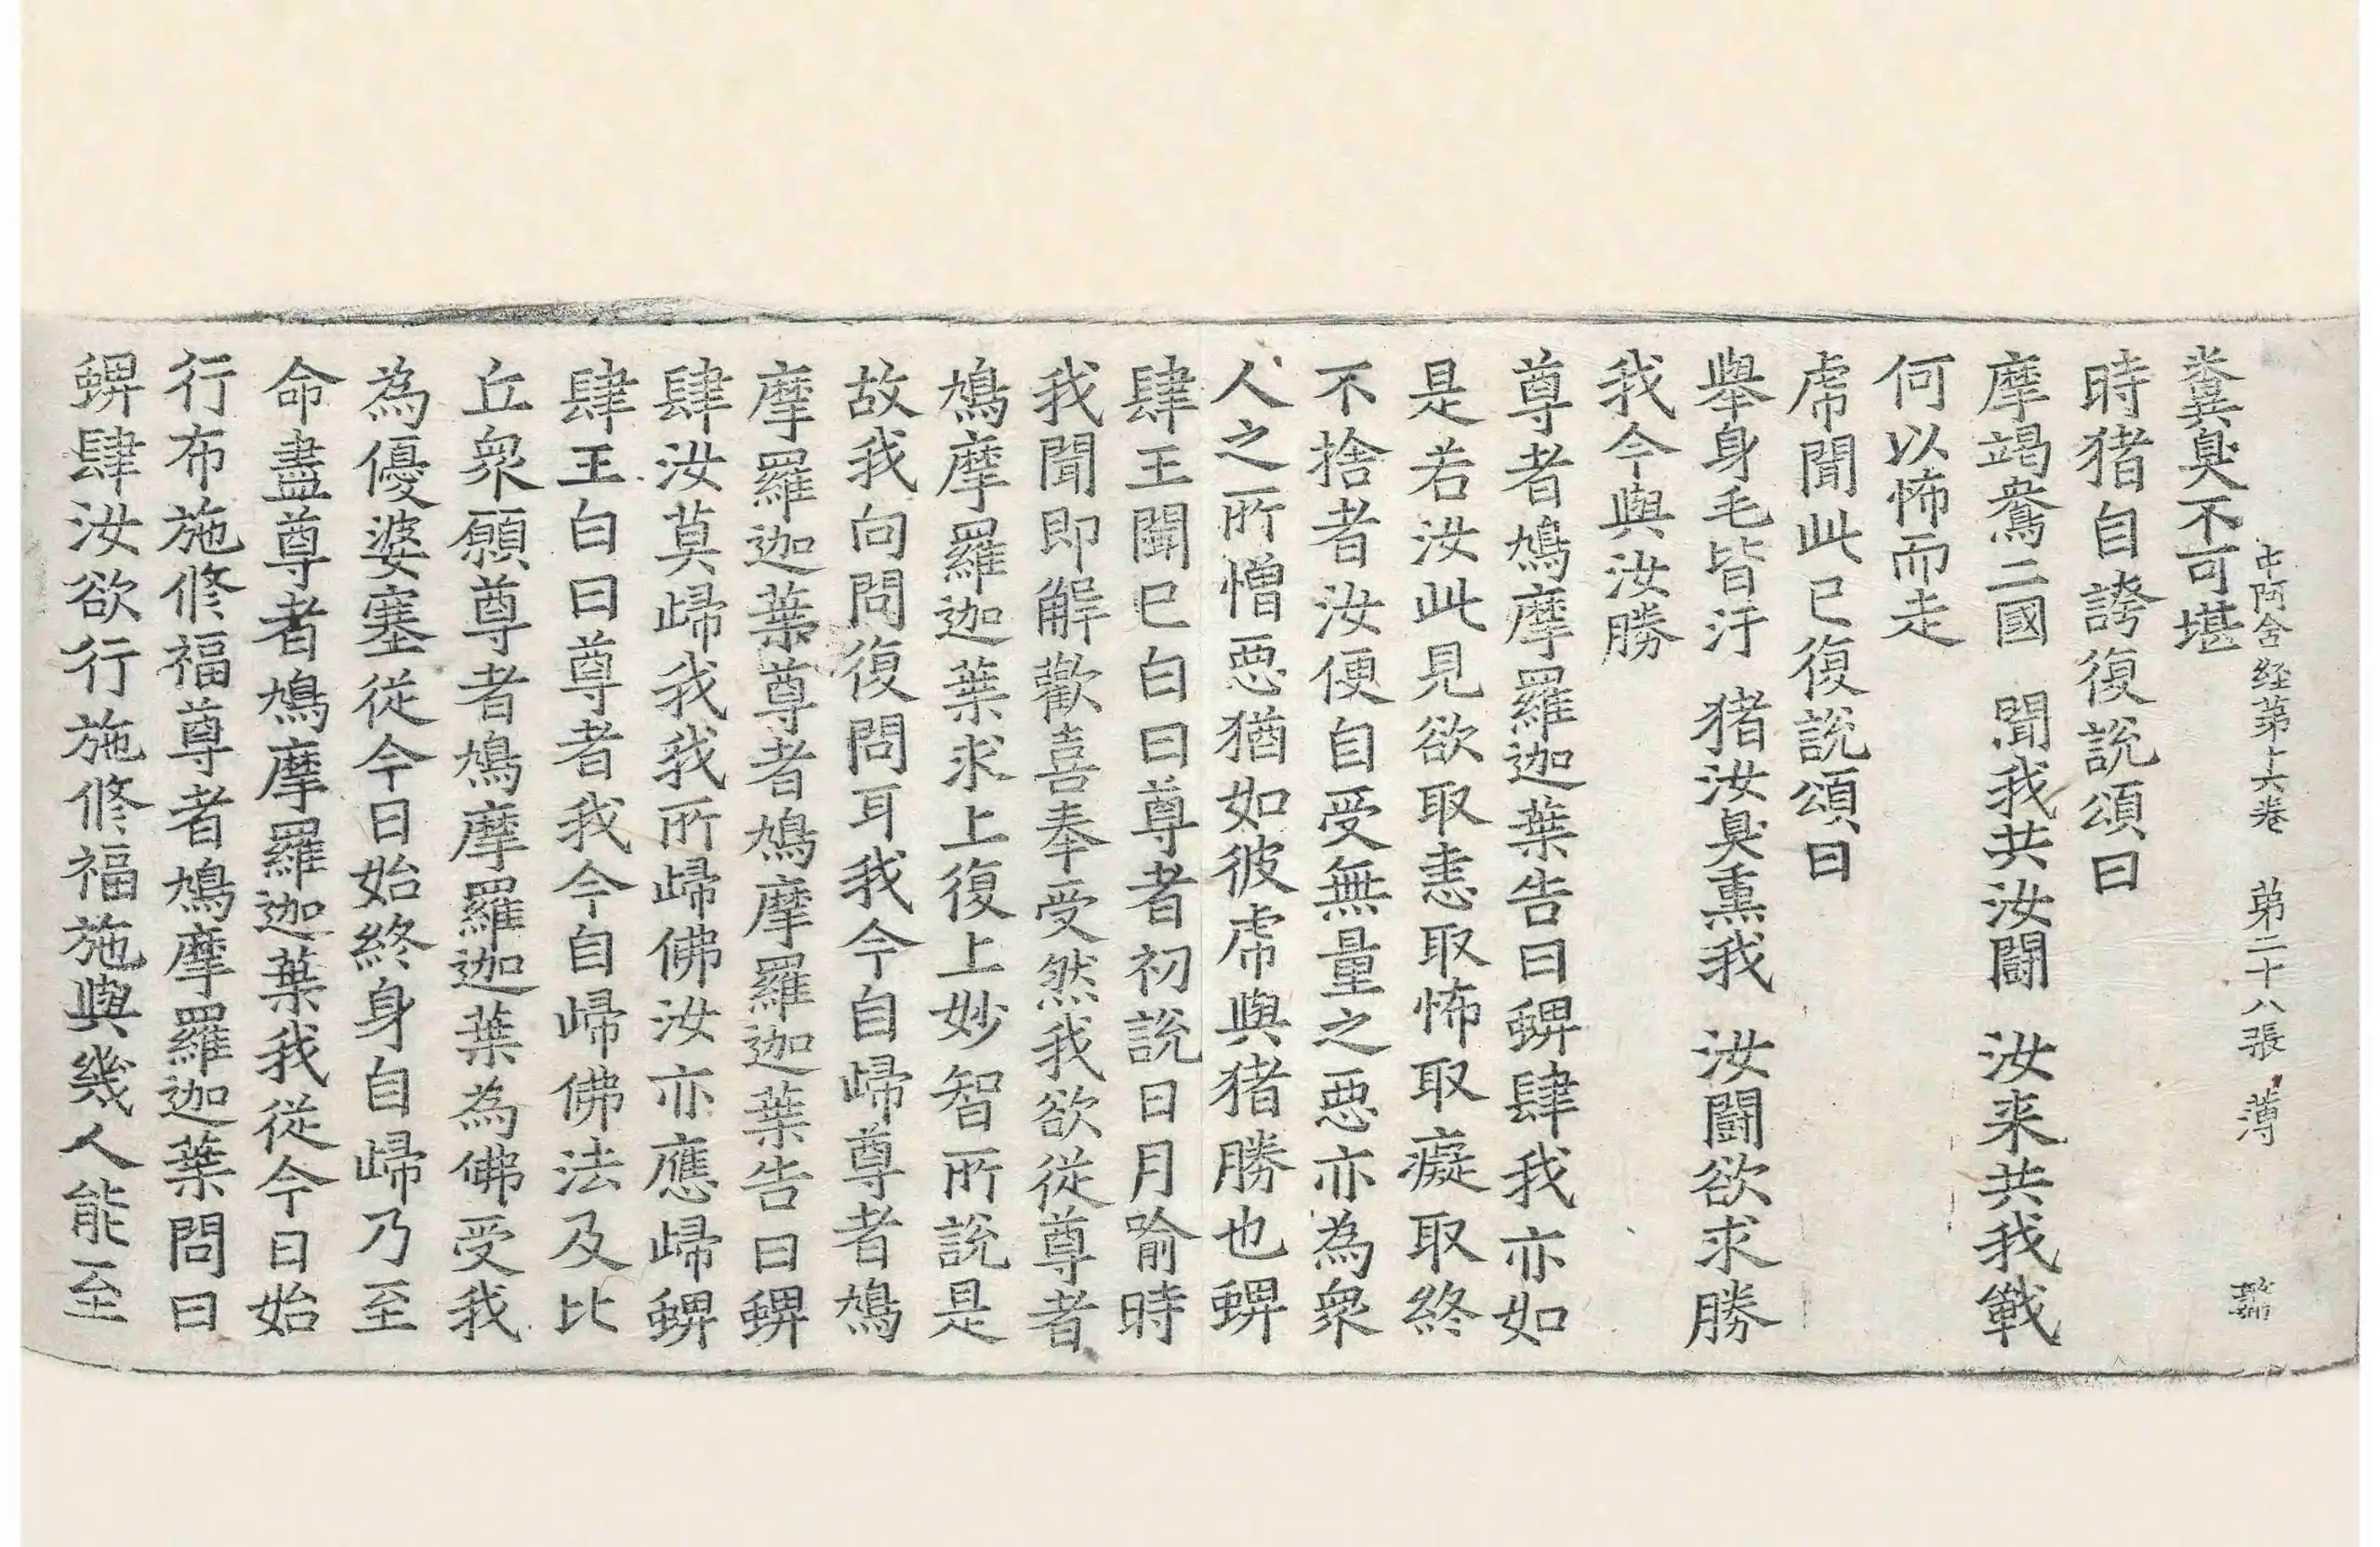 中阿含経苐十六巻 苐二十八張 薄
糞臭不可堪
時猪自誇復說頌曰
摩竭鴦二國 聞我共汝鬪 汝来共我戰
何以怖而走
虎聞此已復說頌曰
舉身毛皆汙 猪汝臭熏我 汝鬪欲求勝
我今與汝勝
尊者鳩摩羅迦葉告曰蜱肆我亦如
是若汝此見欲取恚取怖取癡取終
不捨者汝便自受無量之惡亦為衆
人之所憎惡猶如彼虎與猪勝也蜱
肆王聞已白曰尊者初說日月喻時
我聞即解歡喜奉受然我欲從尊者
鳩摩羅迦葉求上復上妙智所說是
故我向問復問耳我今自歸尊者鳩
摩羅迦葉尊者鳩摩羅迦葉告曰蜱
肆汝莫歸我我所歸佛汝亦應歸蜱
肆王白曰尊者我今自歸佛法及比
丘衆願尊者鳩摩羅迦葉為佛受我
為優婆塞從今日始終身自歸乃至
命盡尊者鳩摩羅迦葉我從今日始
行布施修福尊者鳩摩羅迦葉問曰
蜱肆汝欲行施修福施與幾人能至